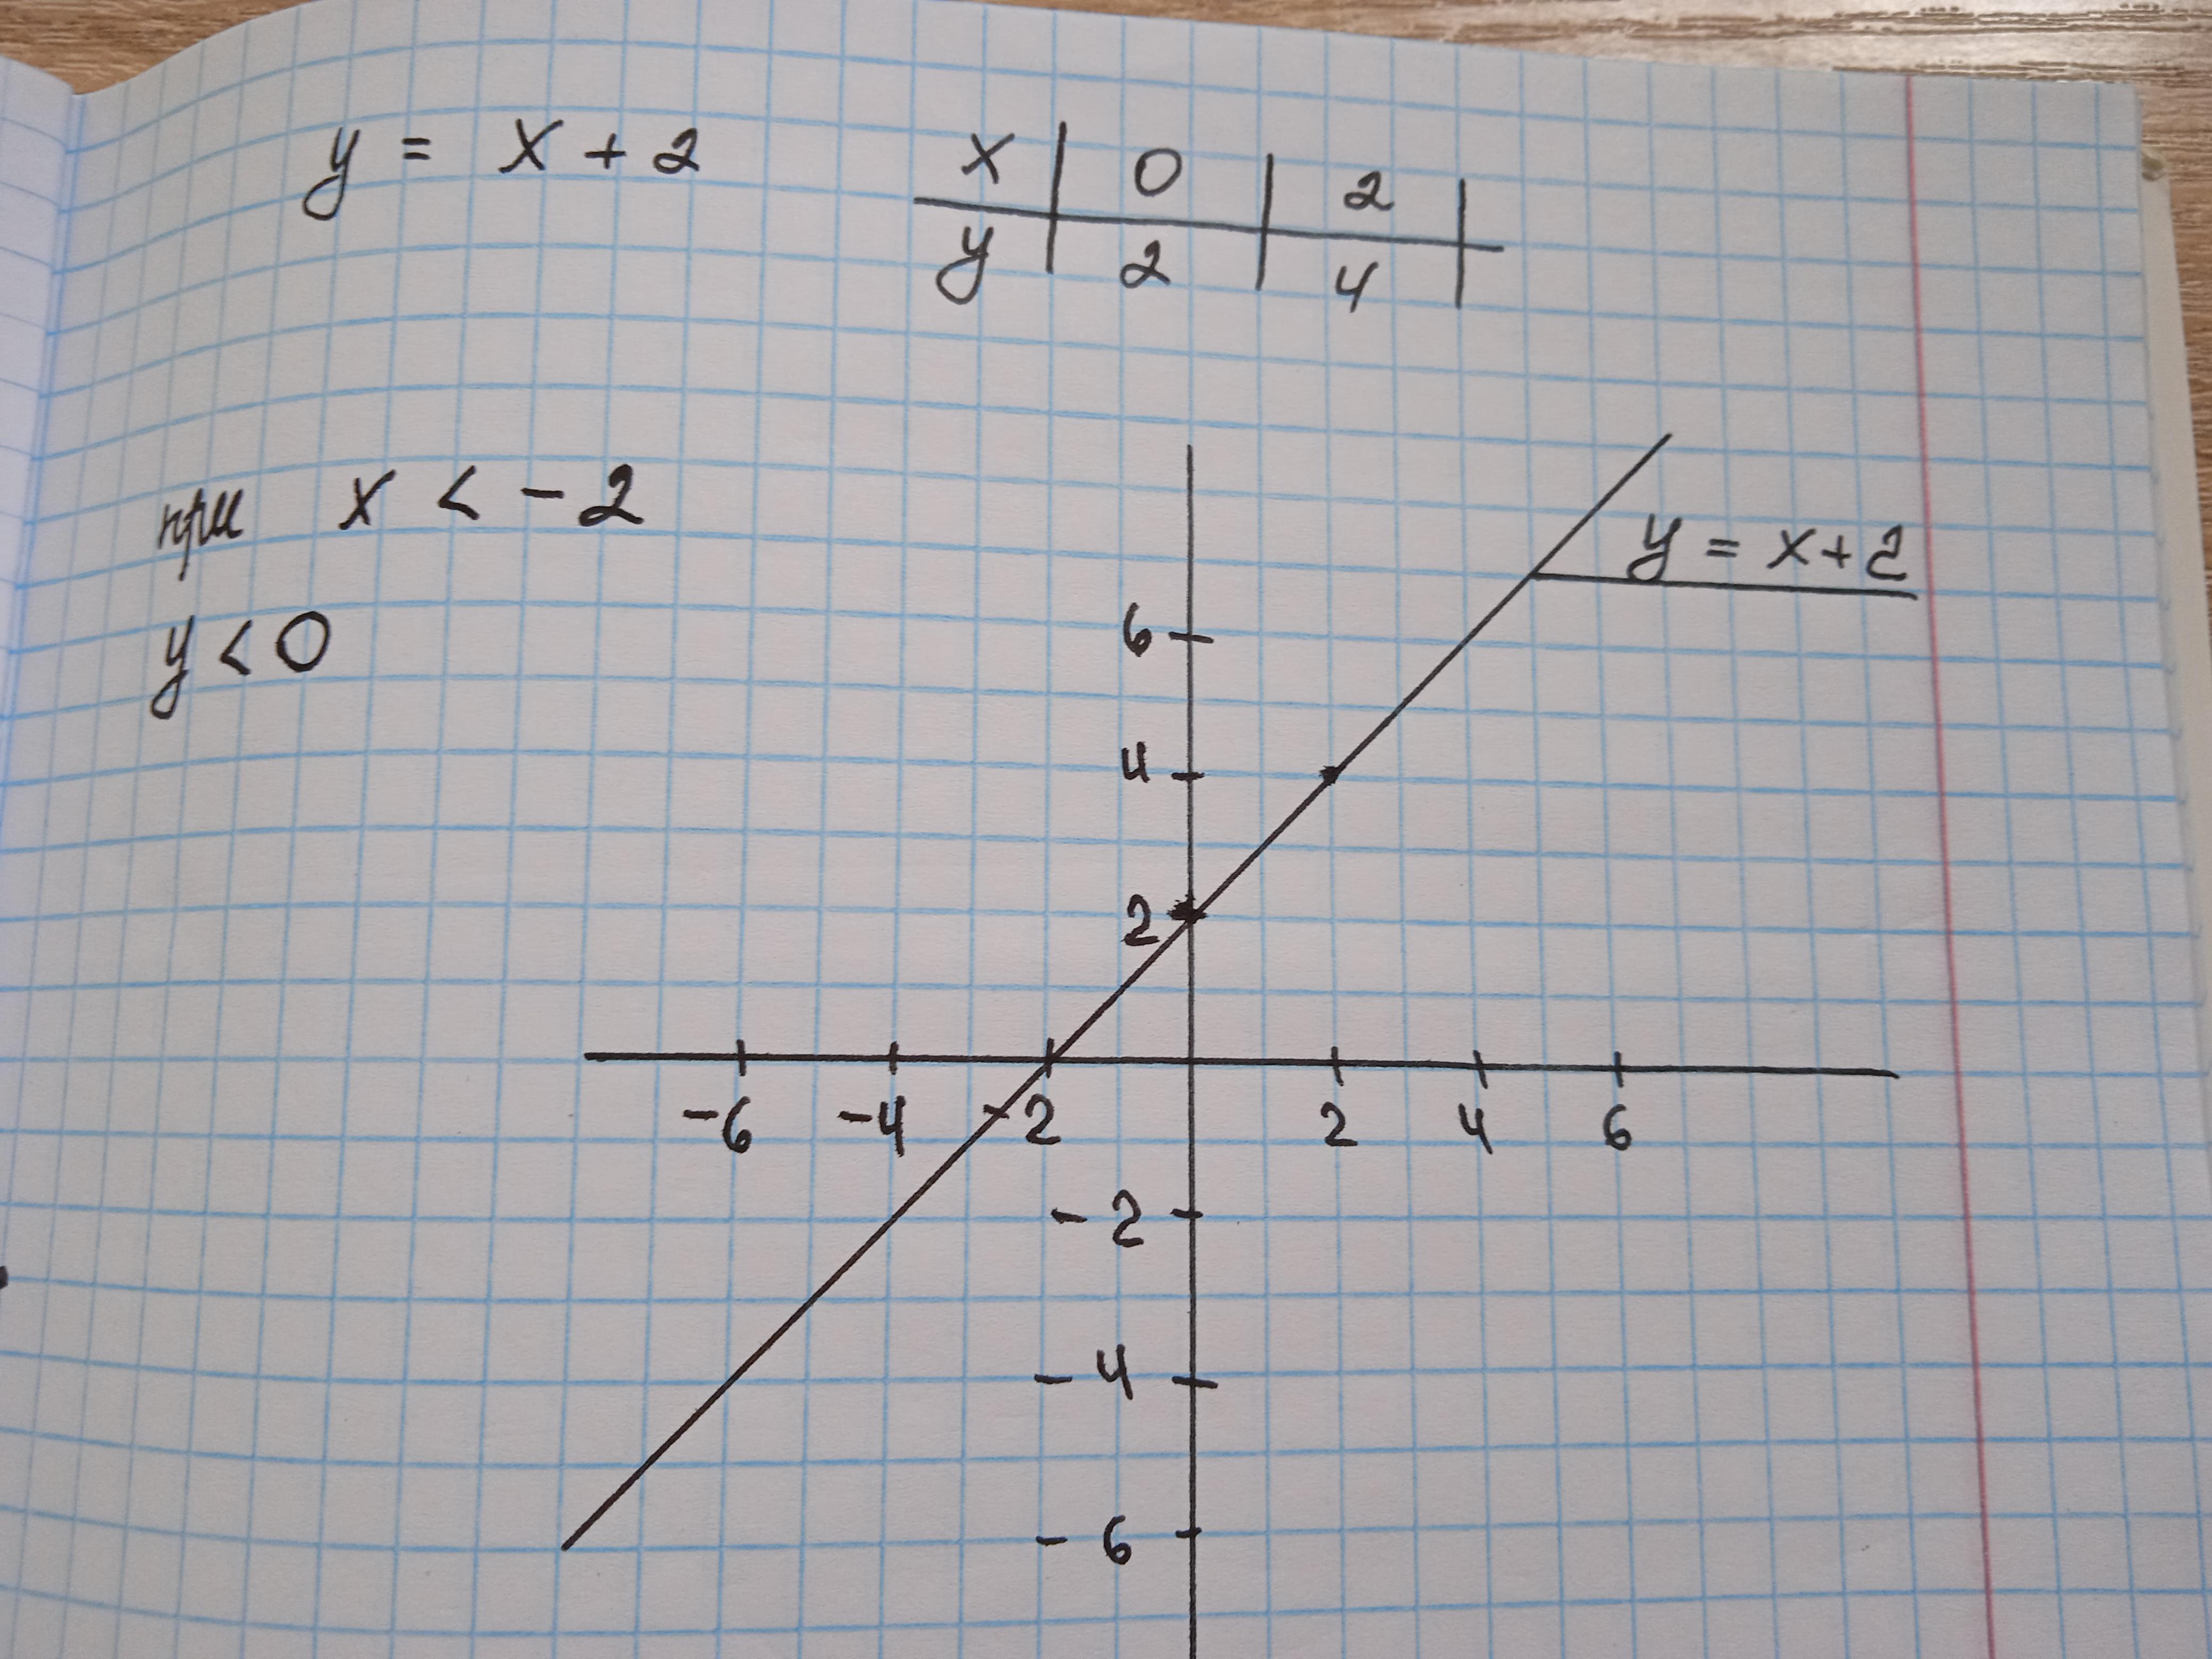 y = x + 2
x | 0 | 2 |
y | 2 | 4 |
при x < - 2
y < 0
y = x + 2
6
4
2
-6 -4 -2 2 4 6
- 2
- 4
- 6